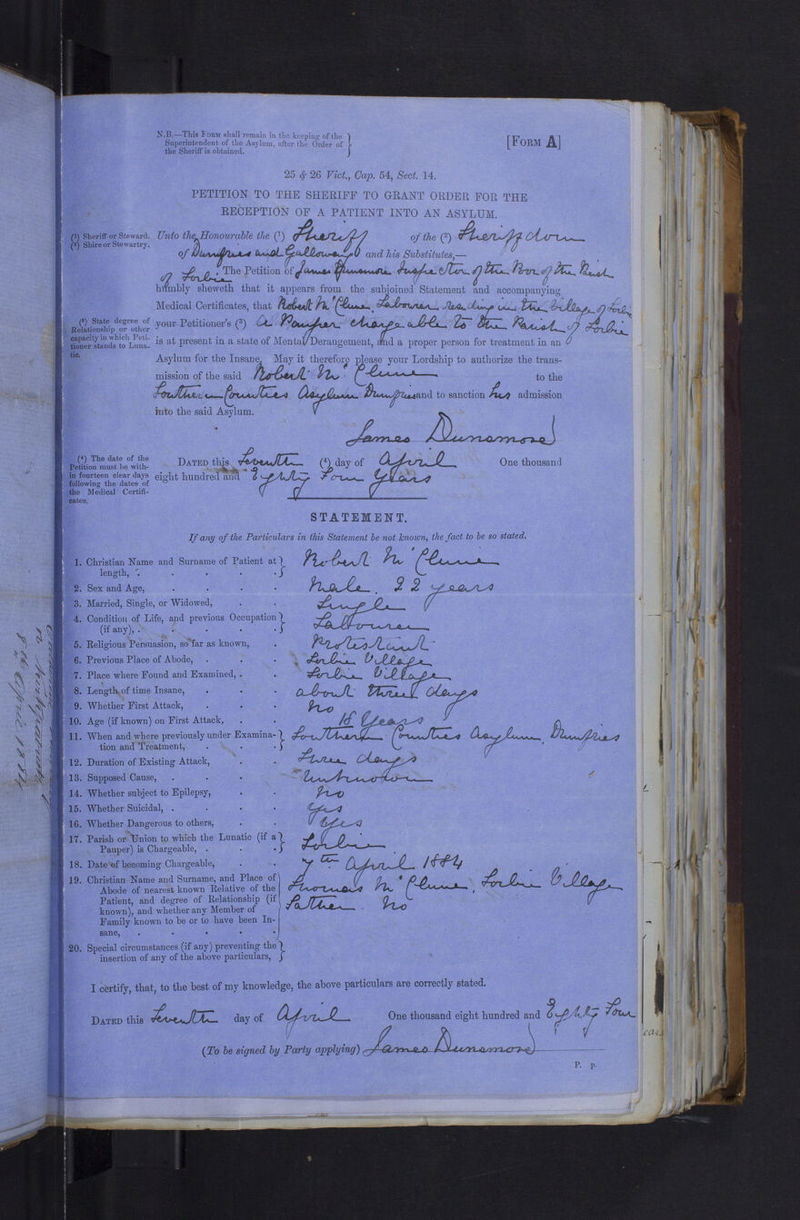 N.B.—This FORM shall remain in the keeping of the
Superintendent of the Asylum, after the Order of
the Sheriff is obtained.
[FORM A]
25 & 26 Vict., Cap. 54, Sect. 14.
PETITION TO THE SHERIFF TO GRANT ORDER FOR THE
RECEPTION OF A PATIENT INTO AN ASYLUM.
(1) Sheriff or Steward.
(2) Shire or Stewartry.
Unto the Honourable the (1) Sheriff of the (2) Sheriffdom
of Dumfries and Galloway and his Substitutes,—
The Petition of James Dunsmore Inspector of the Poor of the Parish
of Sorbie
humbly sheweth that it appears from the subjoined Statement and accompanying
Medical Certificates, that Robert McClune, Labourer residing in the Village of Sorbie
(3) State degree of
Relationship or other
capacity in which Peti-
tioner stands to Luna-
tic.
your Petitioner's (3) a Pauper chargeable to the Parish of Sorbie
is at present in a state of Mental Derangement, and a proper person for treatment in an
Asylum for the Insane. May it therefore please your Lordship to authorize the trans-
mission of the said Robert McClune to the
Southern Counties Asylum Dumfries and to sanction his admission
into the said Asylum.
James Dunsmore
(4) The date of the
Petition must be with-
in fourteen clear days
following the dates of
the Medical Certifi-
cates.
DATED this Seventh (4) day of April One thousand
eight hundred and Eighty Four Years
STATEMENT.
If any of the Particulars in this Statement be not known, the fact to be so stated.
1. Christian Name and Surname of Patient at
length, Robert McClune
2. Sex and Age, Male. 22 years
3. Married, Single, or Widowed, Single
4. Condition of Life, and previous Occupation
(if any), Labourer
5. Religious Persuasion, so far as known, Protestant
6. Previous Place of Abode, Sorbie Village
7. Place where Found and Examined, Sorbie Village
8. Length of time Insane, about three days
9. Whether First Attack, No
10. Age (if known) on First Attack, 18 Years
11. When and where previously under Examina-
tion and Treatment, Southern Counties Asylum, Dumfries
12. Duration of Existing Attack, Three days
13. Supposed Cause, Unknown
14. Whether subject to Epilepsy, No
15. Whether Suicidal, Yes
16. Whether Dangerous to others, Yes
17. Parish or Union to which the Lunatic (if a
Pauper) is Chargeable, Sorbie
18. Date of becoming Chargeable, 7th April 1884
19. Christian Name and Surname, and Place of
Abode of nearest known Relative of the
Patient, and degree of Relationship (if
known), and whether any Member of
Family known to be or to have been In-
sane, Thomas McClune, Sorbie Village
Father No
20. Special circumstances (if any) preventing the
insertion of any of the above particulars,
I certify, that, to the best of my knowledge, the above particulars are correctly stated.
DATED this Seventh day of April One thousand eight hundred and Eighty Four
(To be signed by Party applying) James Dunsmore
P. p.